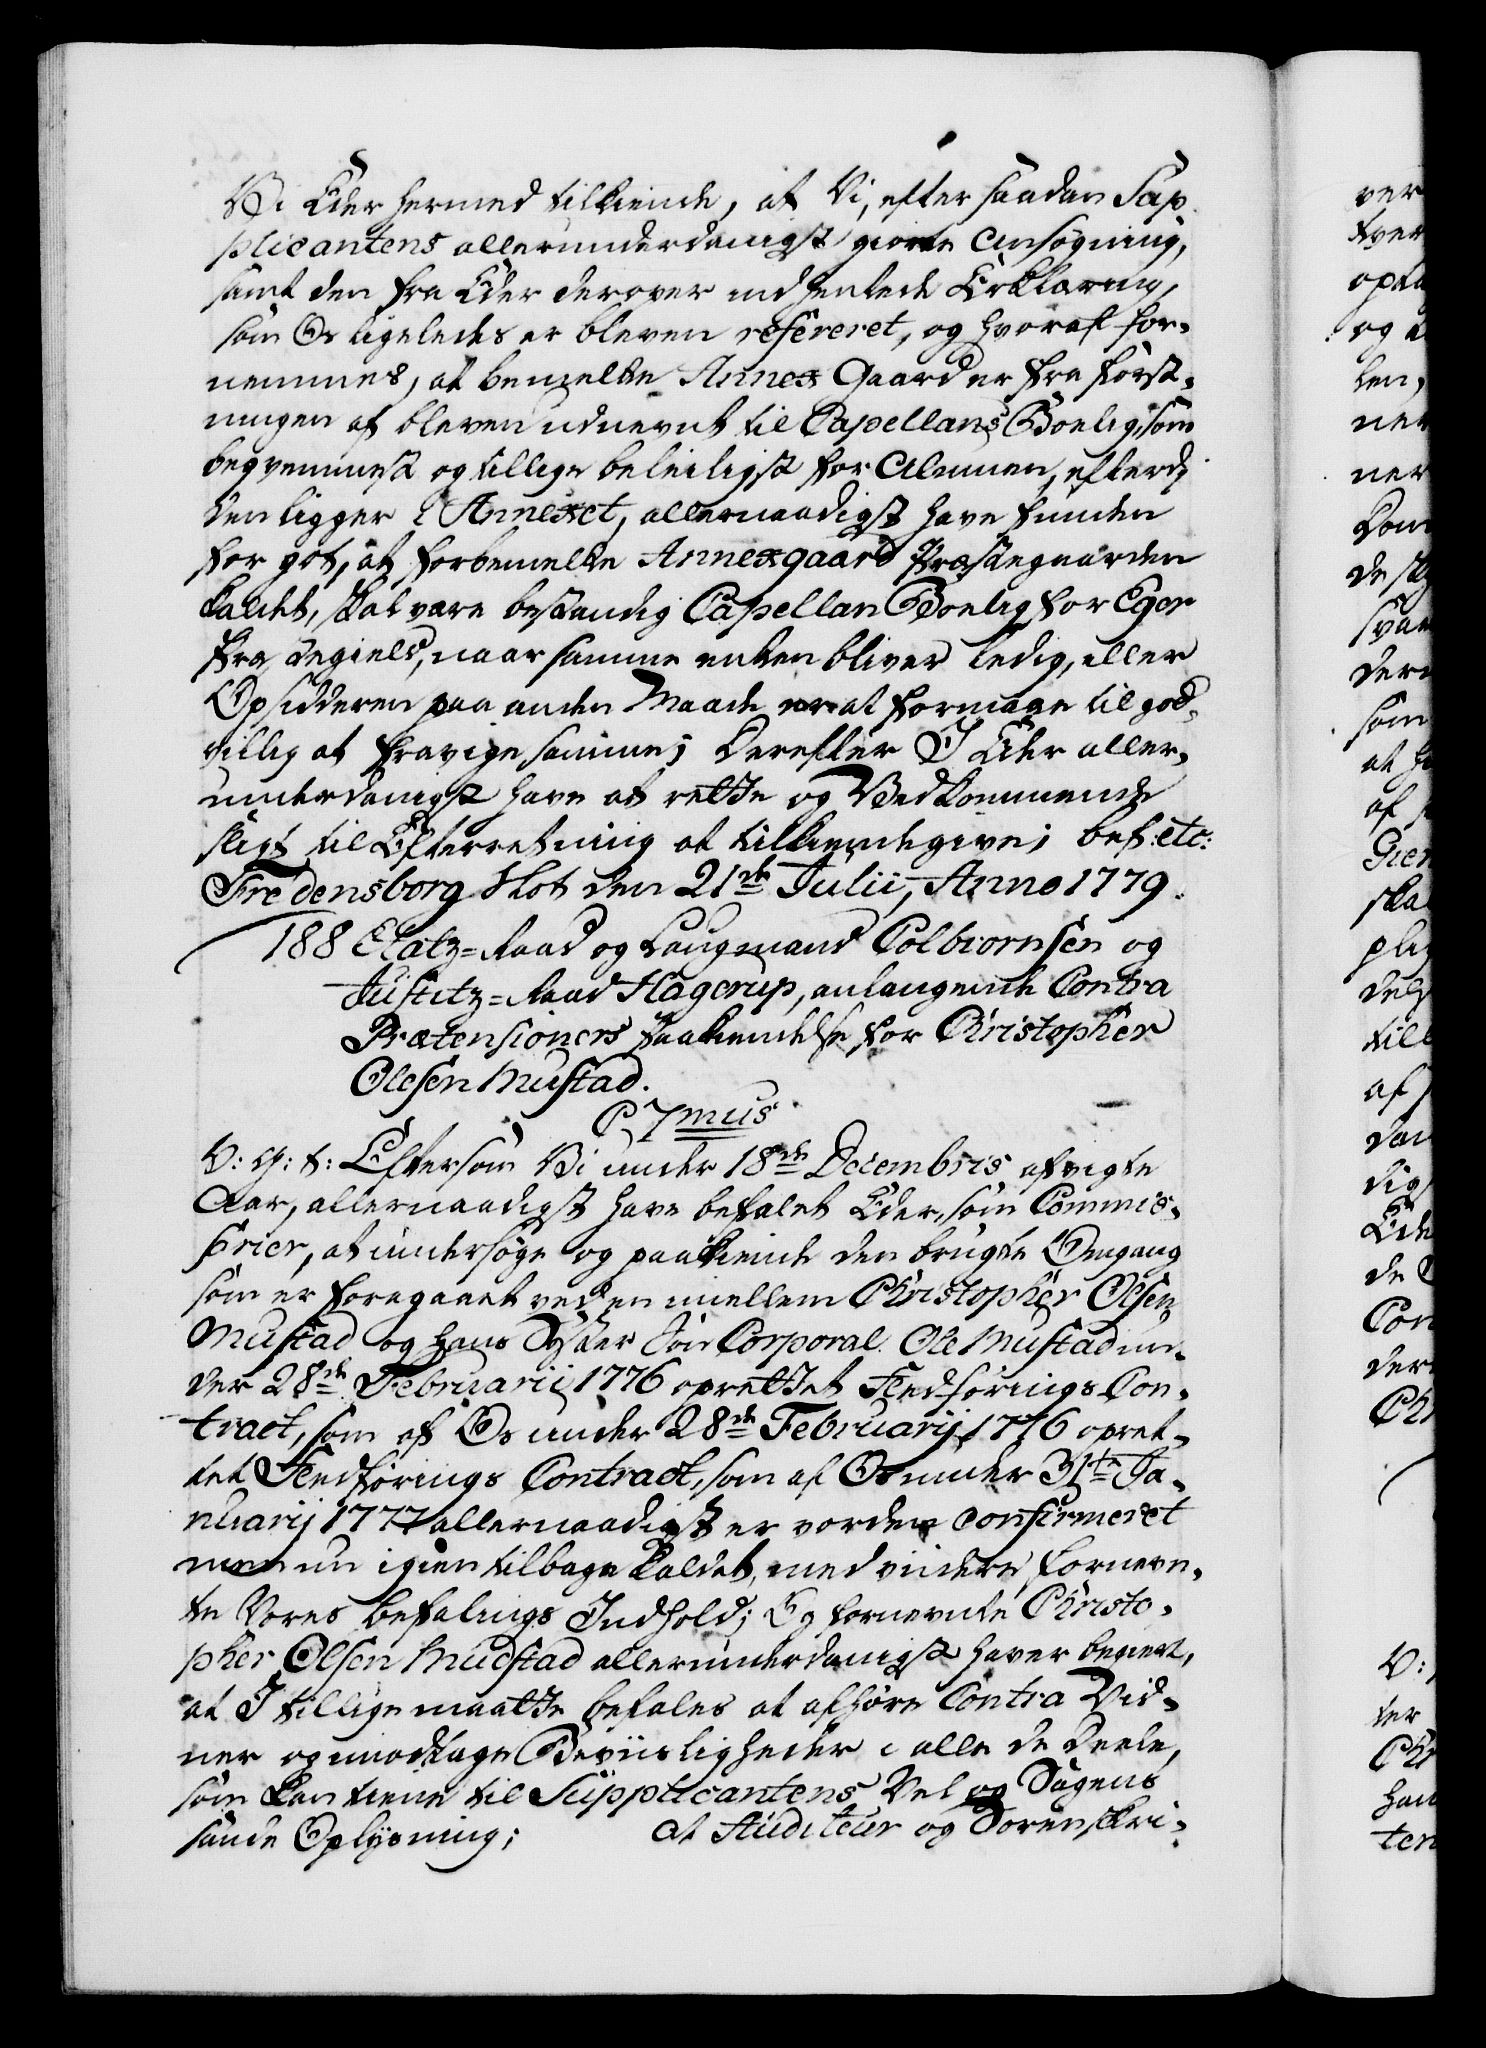 Vi Eder hermed tilkiende, at Vi, efter saadan Sup-
plicantens allerunderdanigst giorte Ansøgning,
samt den fra Eder derover indhentede Erklæring,
som Os ligeledes er bleven refereret, og hvoraf for-
nemmes, at bemelte Annex Gaard er fra første,
ningen af bleven udnevnt til Capellans Boelig, som
beqvemmest og tillige beleiligst for Almuen, efterdi
den ligger i Annexet, allernaadigst have funden
for got, at forbemelte Annexgaard Præstegaarden
kaldet, skal være bestandig Capellan Boelig for Eger
Præstegield, naar samme enten bliver ledig, eller
Opsidderen paa anden Maade er at formaae til god-
villig at fravige samme; Derefter I Eder aller-
underdanigst have at rette og Vedkommende
sligt til Efterretning at tilkiendegive; bef: etc:
Fredensborg Slot den 21de Julii, Anno 1779.
188 Etatz-Raad og Laugmand Colbiørnsen og
Justitz-Raad Hagerup, anlangende Contra
Prætensioners Paakiendelse for Christopher
Olesen Mustad.
C 7mus
V: G: T: Eftersom Vi under 18de Decembris afvigte
Aar, allernaadigst have befalet Eder, som Commis-
sarier, at undersøge og paakiende den brugte Omgang
som er foregaaet ved en imellem Christopher Olsen
Mustad og hans Søster Søn Corporal Ole Mustad un-
der 28de Februarii 1776 oprettet Fledførings Con-
tract, som af Os under 28de Februarij 1776 opret-
tet Fledførings Contract, som af Os under 31te Ja-
nuarij 1777 allernaadigst er vorden confirmeret
men nu igien tilbage kaldet, med videre fornevn-
te Vores befalings Indhold; Og fornevnte Christo-
pher Olsen Mudstad allerunderdanigst haver begiert,
at I tillige maatte befales at afhøre Contra Vid-
ner og modtage Beviisligheder i alle de Deele,
som kan tiene til Supplicantens Vel og Sagens
sande Oplysning; at Auditeur og Sorenskri-